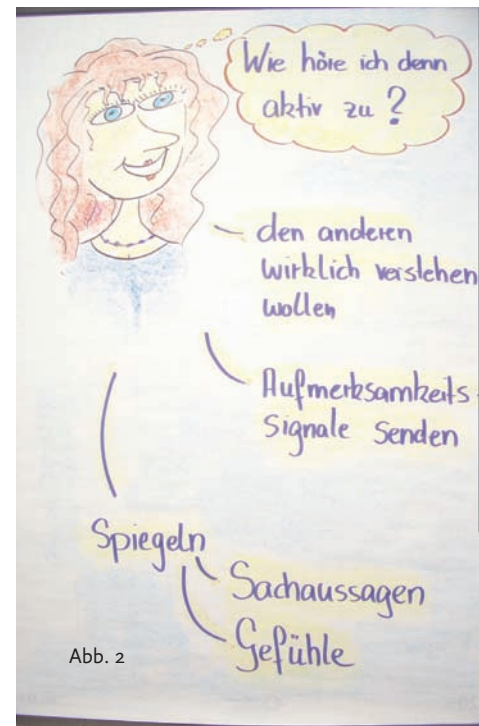 Wie höre ich denn
aktiv zu?
den anderen
wirklich verstehen
wollen
Aufmerksamkeits-
signale senden
Spiegeln
Sachaussagen
Gefühle
Abb. 2